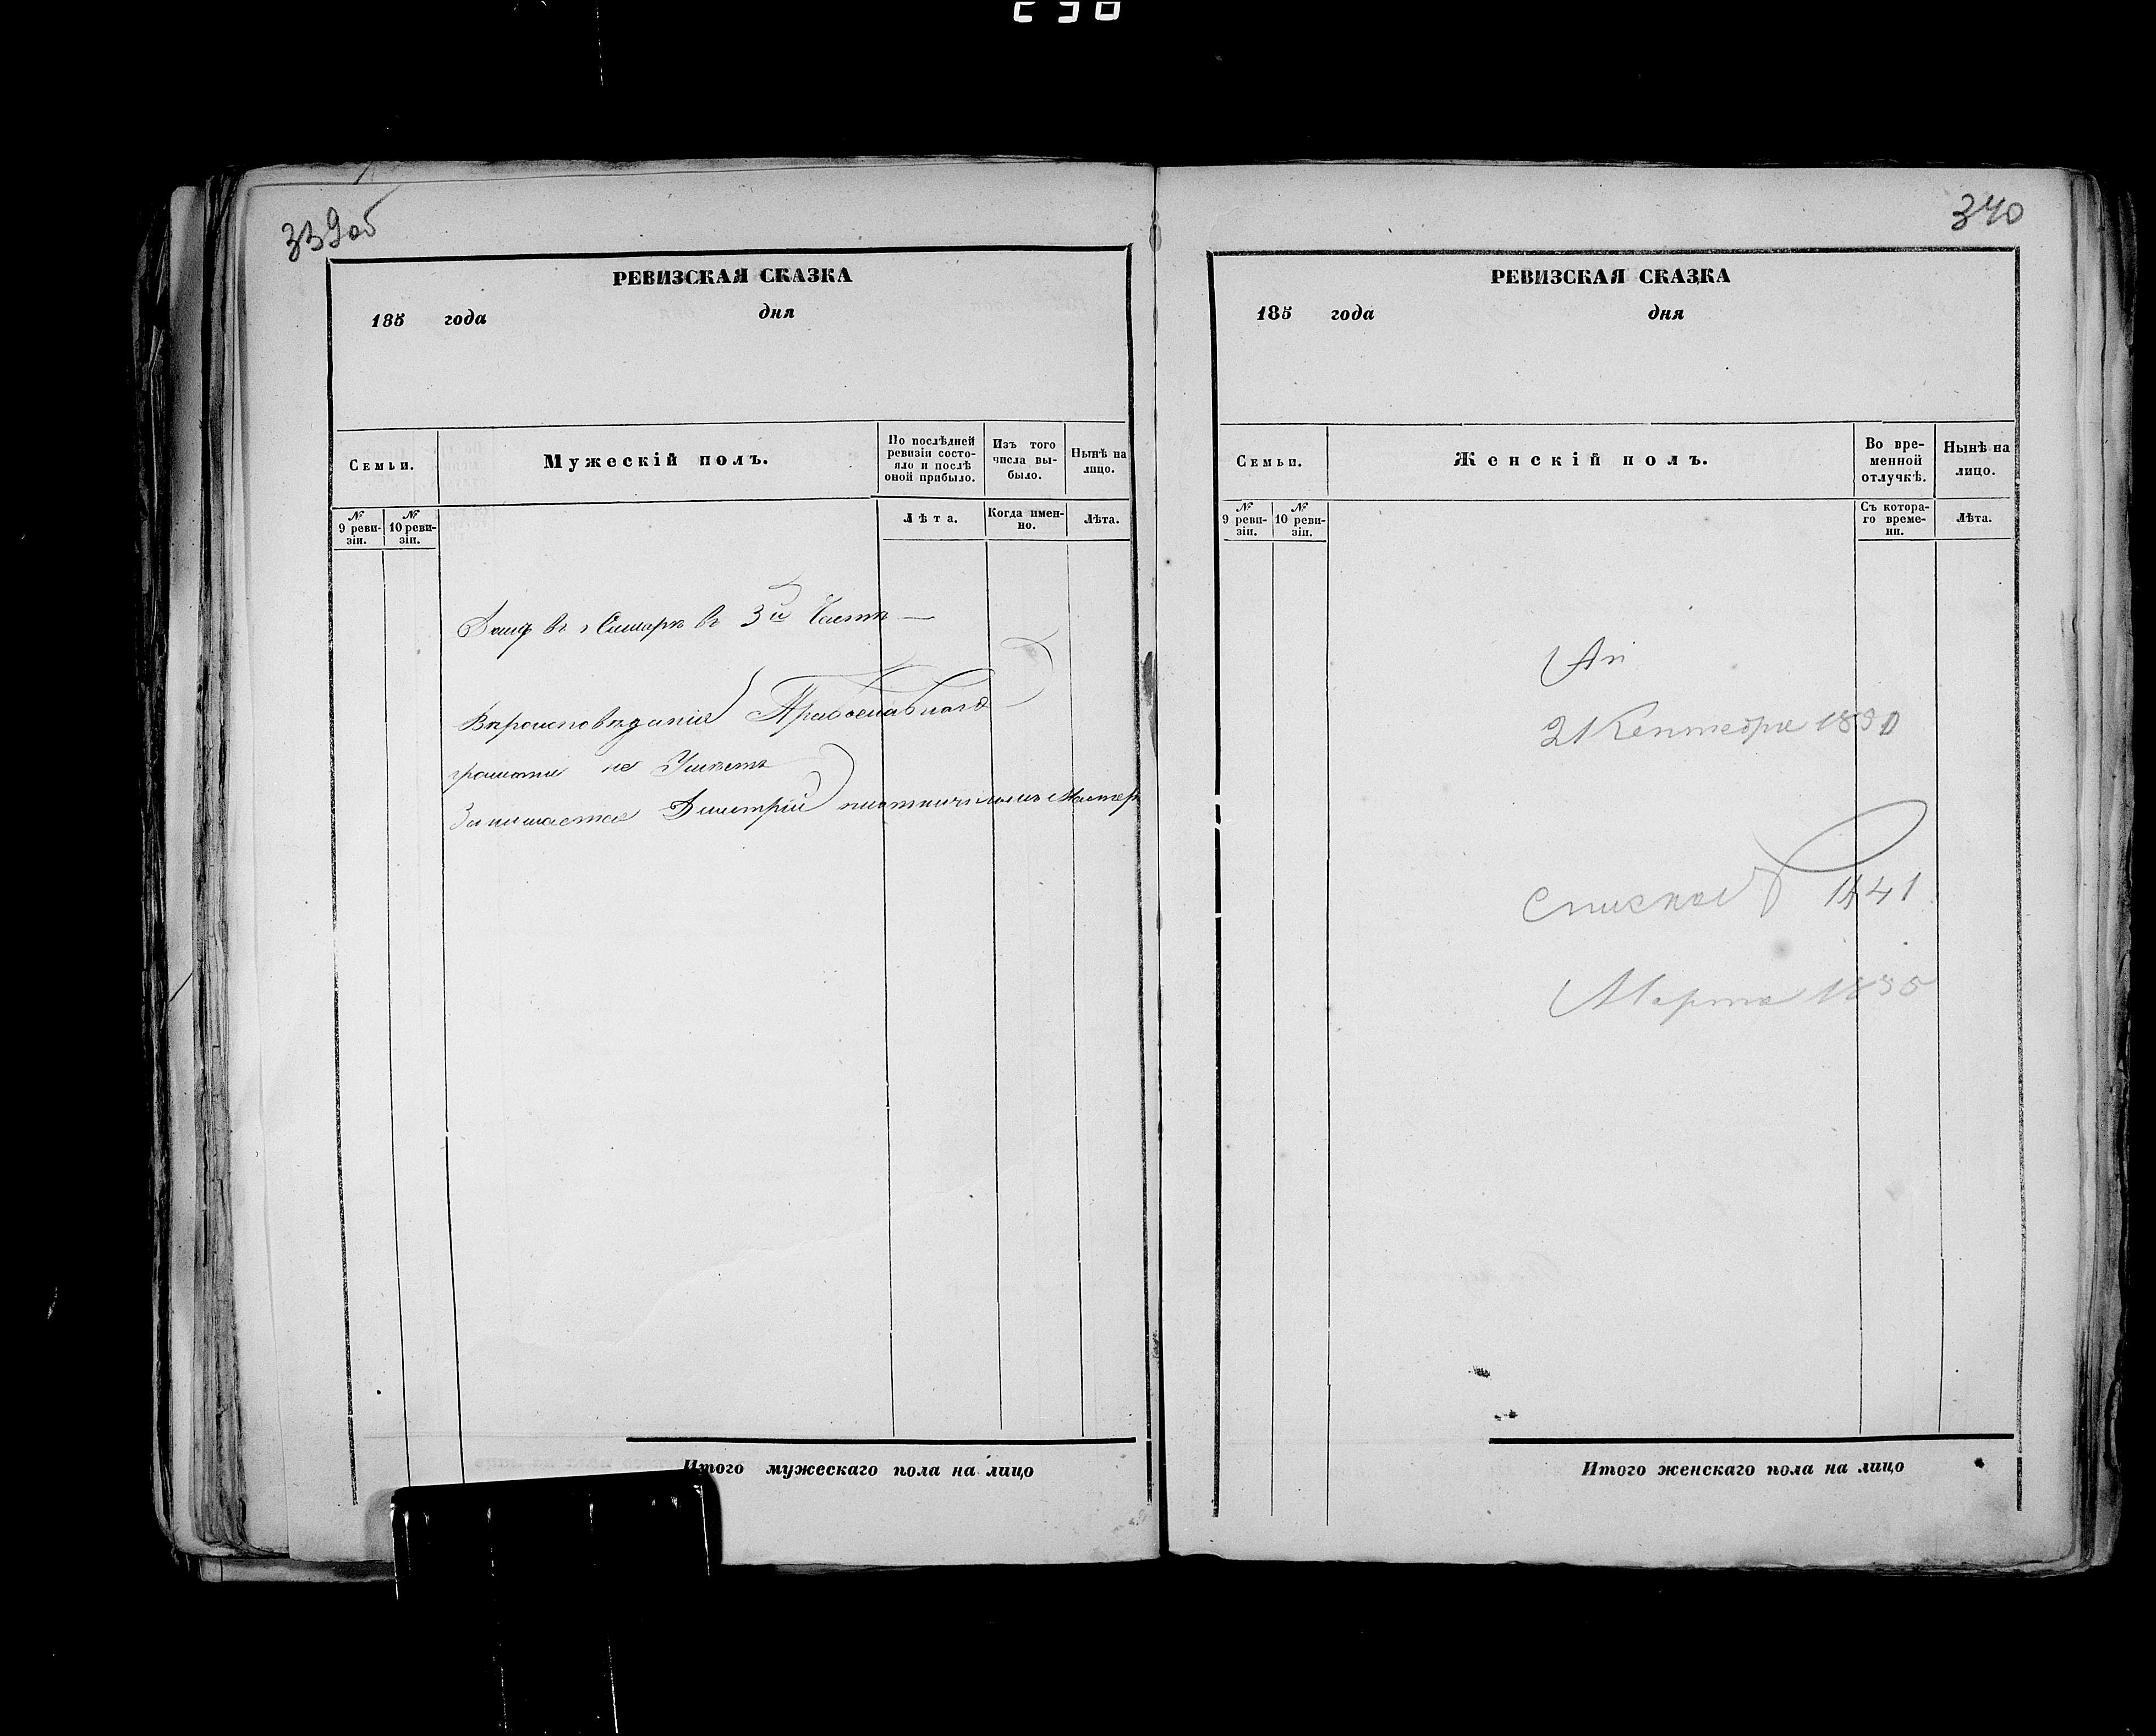 339об
РЕВИЗСКАЯ СКАЗКА
185 года дня
Семьи.
Мужескій полъ.
По послѣдней ревизіи состояло и послѣ оной прибыло.
Изъ того числа выбыло.
Нынѣ на лицо.
№ 9 ревизіи.
№ 10 ревизіи.
Лѣта.
Когда именно.
Лѣта.
Домъ въ г Самарѣ въ 3й Части
Вѣроисповѣданія Православнаго
грамоти не Умѣетъ
Занимается Дмитрій
Итого мужескаго пола на лицо
340
РЕВИЗСКАЯ СКАЗКА
185 года дня
Семьи.
Женскій полъ.
Во временной отлучкѣ.
Нынѣ на лицо.
№ 9 ревизіи.
№ 10 ревизіи.
Съ котораго времени.
Лѣта.
21 Сентября
1841
Марта
Итого женскаго пола на лицо